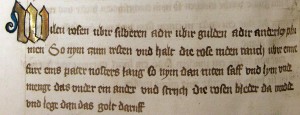 Wilen rosen uber silberen adir ubir gulden adir ander
men So nym zum ersten und halt die rose nden rauch ubir eine
fure eins pater nosters lang so nym dan roten saff und lym und
menge das under ein ander und strych die rosen bleder da medde
und lege dan das golt daruff